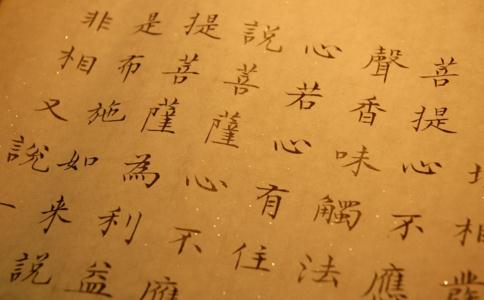 相
菩提心不應
聲香味觸法
心若心有住
說菩薩心不應
提菩薩為利益
是布施如來說
非相又說一